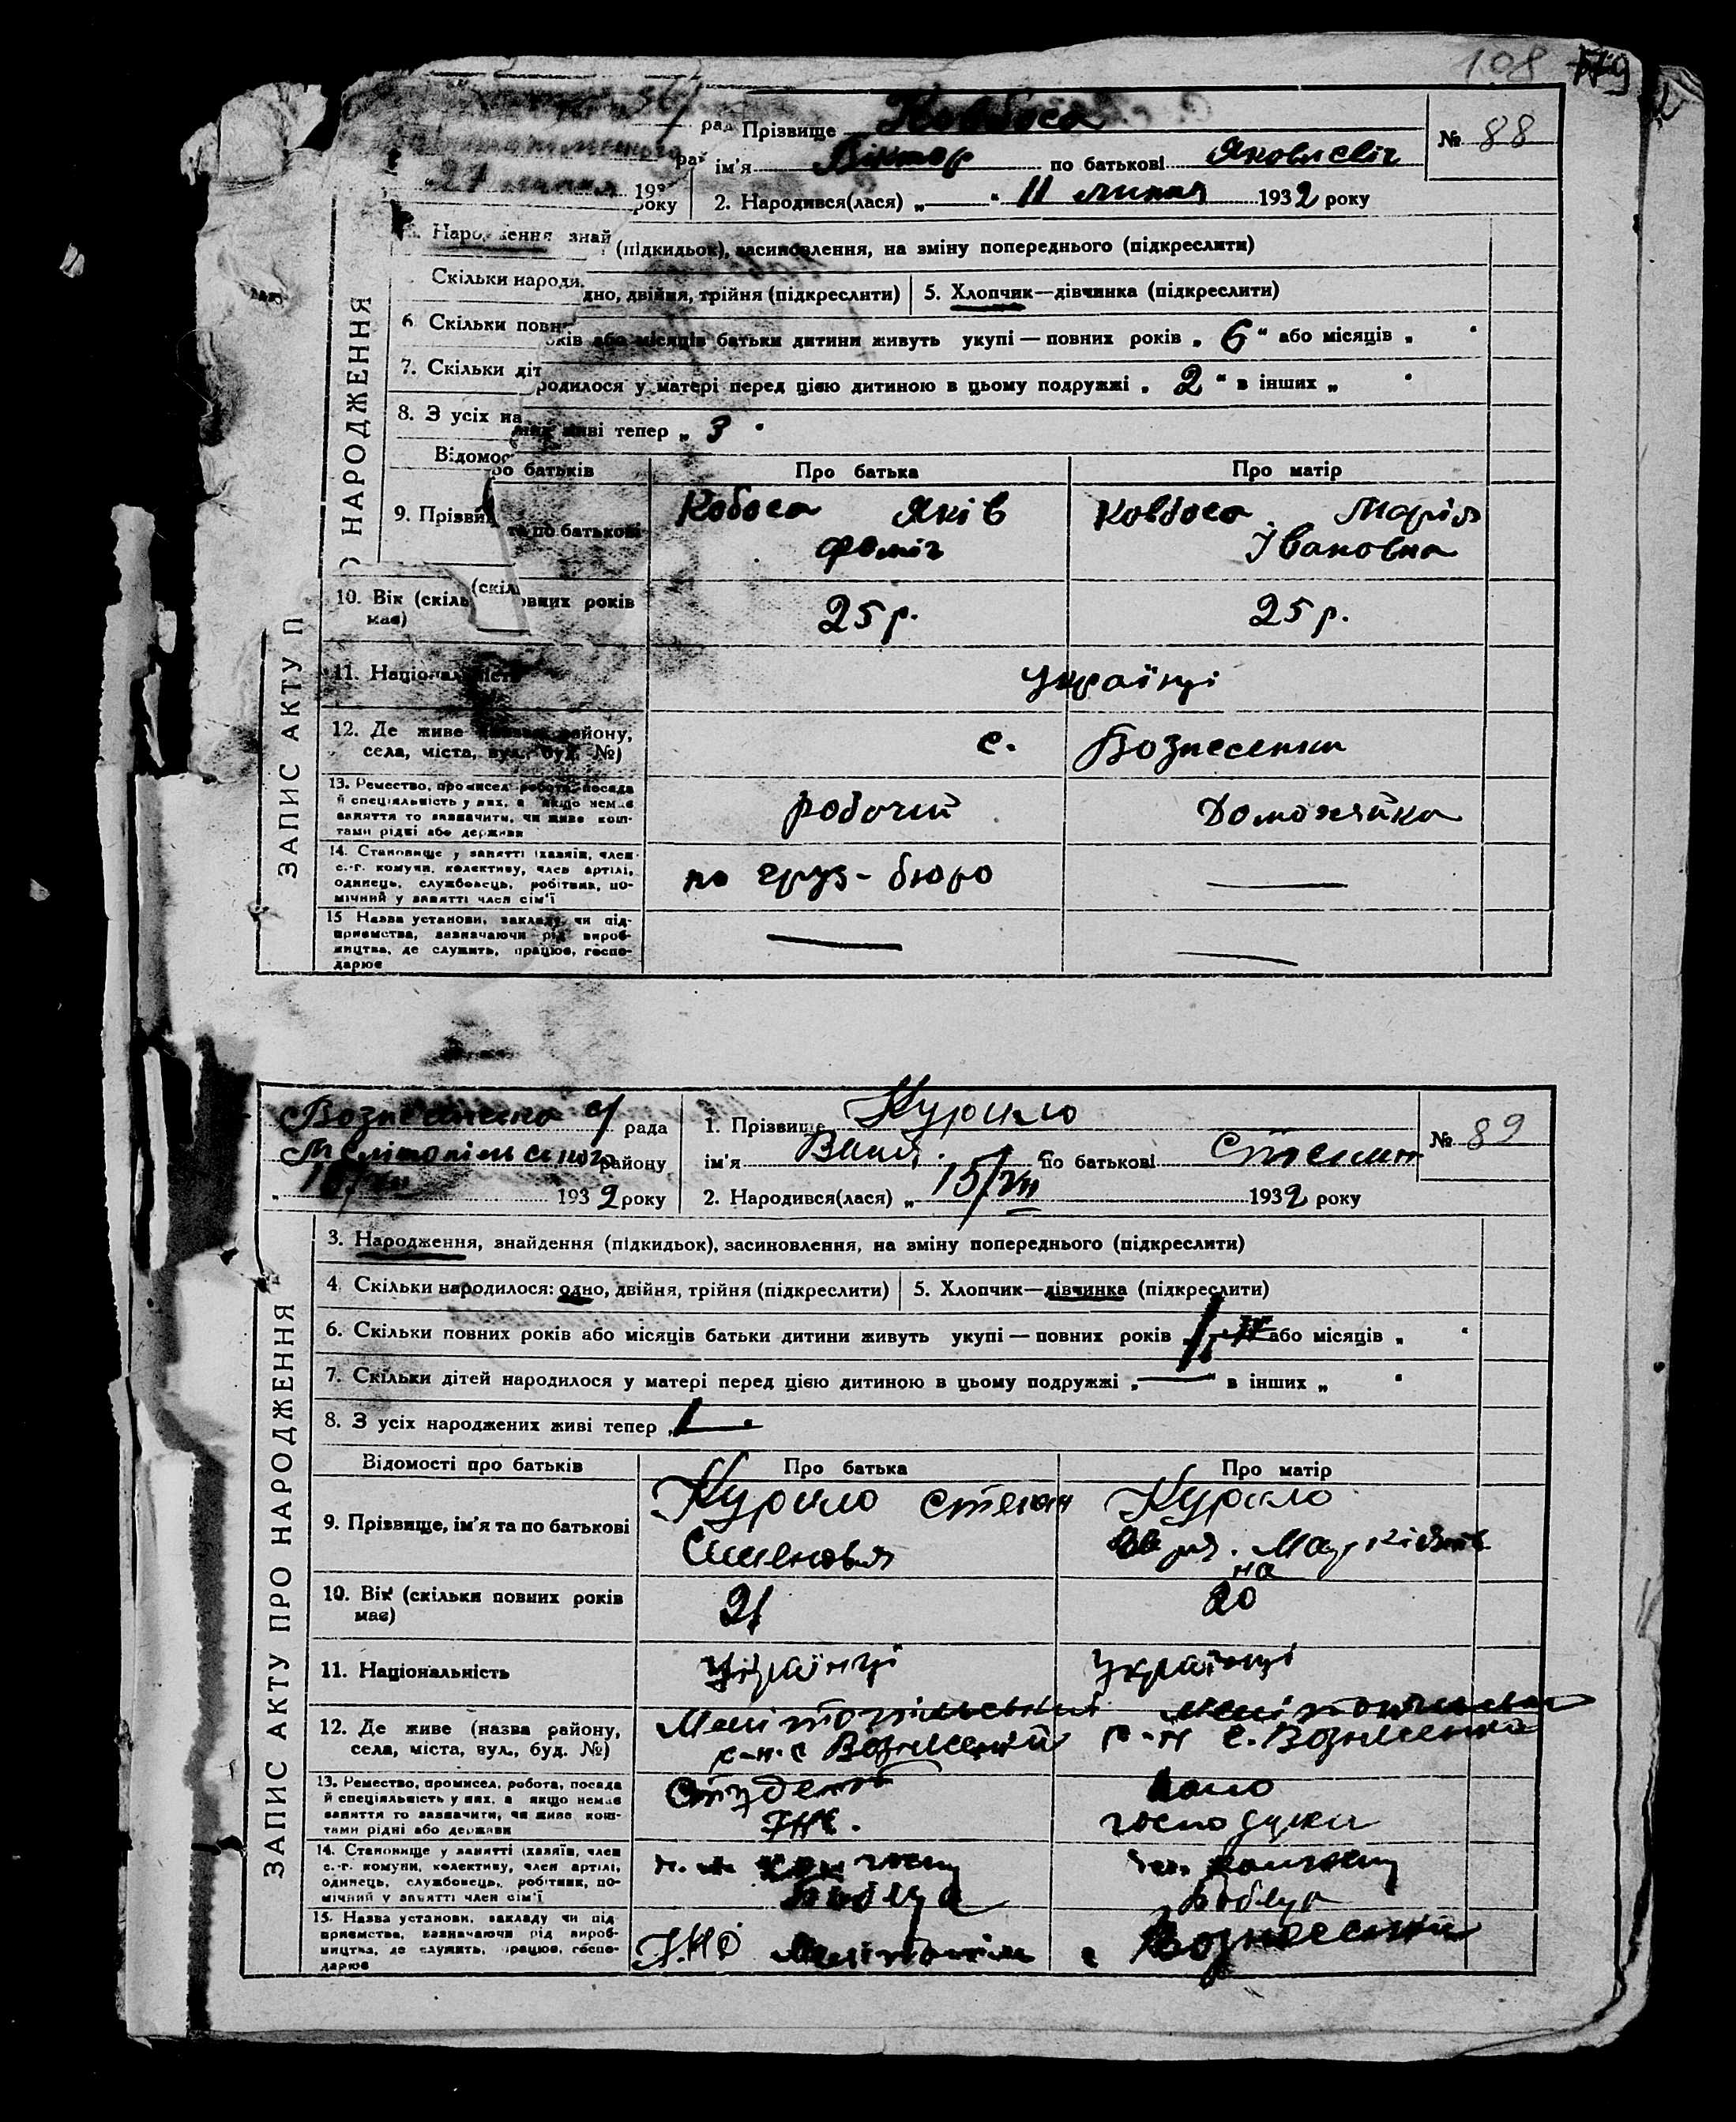 108 179
рад Прізвище Ковбоса № 88
рай ім'я Віктор по батькові Яковлєвіч
27 липня 193 року 2. Народився(лася) „ “ 11 липня 1932 року
знай (підкидьок), засиновлення, на зміну попереднього (підкреслити)
Скільки народи дно, двійня, трійня (підкреслити) 5. Хлопчик—дівчинка (підкреслити)
6. Скільки повн ків або місяців батьки дитини живуть укупі — повних років „ 6 “ або місяців „ “
7. Скільки діт родилося у матері перед цією дитиною в цьому подружжі „ 2 “ в інших „ “
8. З усіх на живі тепер „ 3 “
Відомос ро батьків Про батька Про матір
9. Прізви та по батькові Кобоса Яків Ковбоса Марія
Фоміч Івановна
10. Вік (скіль овних років має) 25 р. 25 р.
11. Національність Українці
12. Де живе району, села, міста, вул., буд. №) с. Вознесенки
13. Ремество, промисел, робота, посада
й спеціяльність у них, а якщо немає
заняття то зазначити, чи живе кош-
тами рідні або держави
робочий Домохзяйка
14. Становище у занятті (хазяїн, член
с.-г. комуни, колективу, член артілі,
одинець, службовець, робітник, по-
мічний у занятті член сім'ї
по груз-бюро —
15 Назва установи, закладу, чи під-
приємства, зазначаючи рід вироб-
ництва, де служить, працює, госпо-
дарює
— —
ЗАПИС АКТУ П О НАРОДЖЕННЯ
Вознесенська с/ рада 1. Прізвище Курило № 89
Мелітопільського району ім'я по батькові Степан
1932 року 2. Народився(лася) „ 15/VII 1932 року
3. Народження, знайдення (підкидьок), засиновлення, на зміну попереднього (підкреслити)
4. Скільки народилося: одно, двійня, трійня (підкреслити) 5. Хлопчик—дівчинка (підкреслити)
6. Скільки повних років або місяців батьки дитини живуть укупі — повних років „ 1 або місяців „ “
7. Скільки дітей народилося у матері перед цією дитиною в цьому подружжі „ — “ в інших „ “
8. З усіх народжених живі тепер „ 1 “
Відомості про батьків Про батька Про матір
9. Прізвище, ім'я та по батькові Курило Степан Курило
10. Вік (скільки повних років має) 21 20
11. Національність Українці Українці
12. Де живе (назва району, села, міста, вул., буд. №) Мелітопільський Мелітопільськ
р-н. с Вознесенка р-н с. Вознесенка
13. Ремество, промисел, робота, посада
й спеціяльність у них, а якщо немає
заняття то зазначити, чи живе кош-
тами рідні або держави
Студент
ІНО.
14. Становище у занятті (хазяїн, член
с.-г. комуни, колективу, член артілі,
одинець, службовець, робітник, по-
мічний у занятті член сім'ї
15. Назва установи, закладу чи під-
приємства, зазначаючи рід вироб-
ництва, де служить, працює, госпо-
дарює
ІНО Мелітопіль с Вознесенка
ЗАПИС АКТУ ПРО НАРОДЖЕННЯ